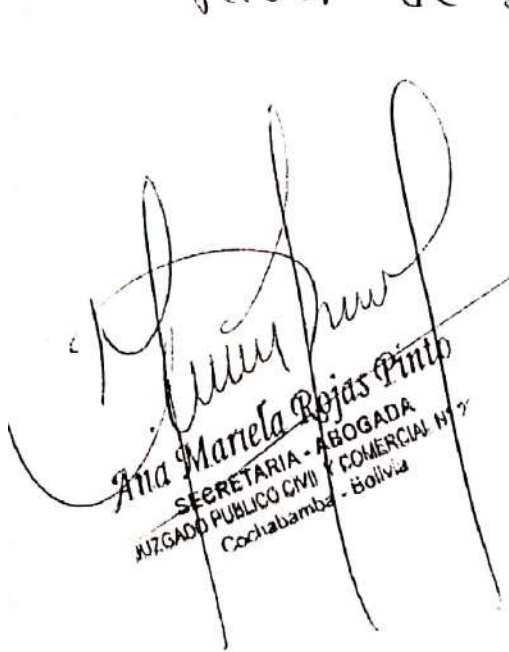 Ana Mariela Rojas Pinto
SECRETARIA - ABOGADA
JUZGADO PUBLICO CIVIL Y COMERCIAL Nº
Cochabamba - Bolivia